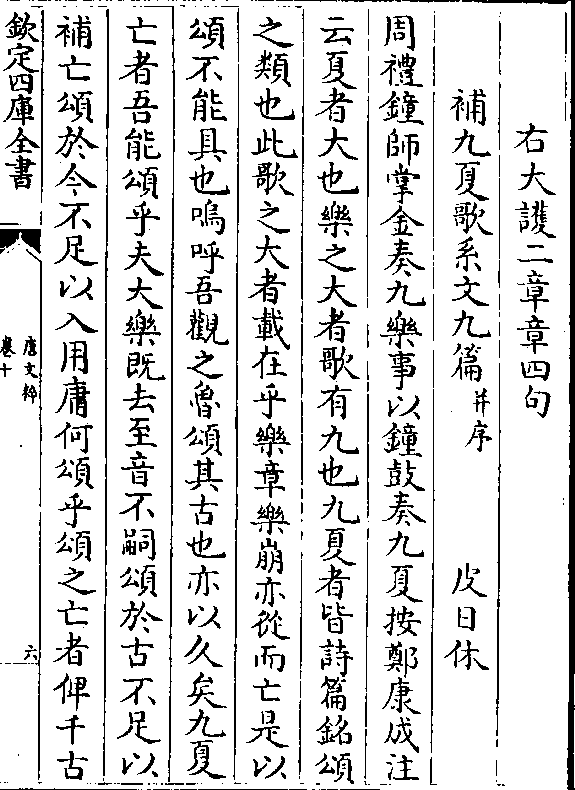 右大頀二章章四句
補九夏歌系文九篇 并序 皮日休
周禮鐘師掌金奏九樂事以鐘鼓奏九夏按鄭康成注
云夏者大也樂之大者歌有九也九夏者皆詩篇銘頌
之類也此歌之大者載在乎樂章樂崩亦從而亡是以
頌不能具也嗚呼吾觀之魯頌其古也亦以久矣九夏
亡者吾能頌乎夫大樂既去至音不嗣頌於古不足以
補亡頌於今不足以入用庸何頌乎頌之亡者俾千古
欽定四庫全書
唐文粹
卷十
六